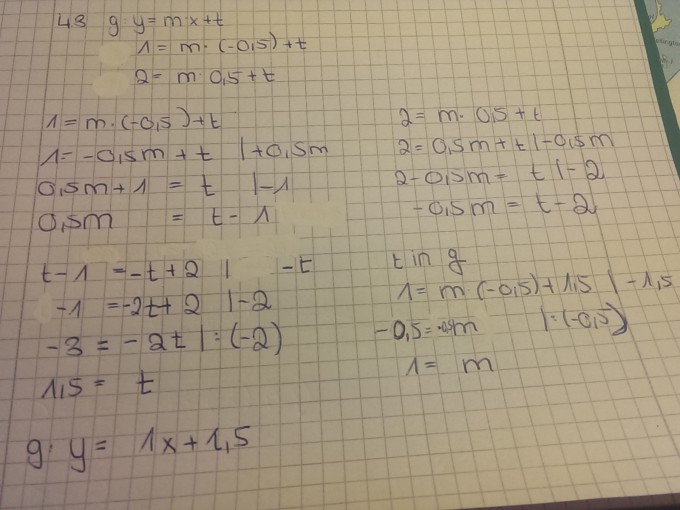 43 g: y = m·x+t
1 = m·(-0,5)+t
2 = m·0,5+t
1 = m·(-0,5)+t
1 = -0,5m + t |+0,5m
0,5m+1 = t |-1
0,5m = t-1
2 = m·0,5+t
2 = 0,5m+t |-0,5m
2-0,5m = t |-2
-0,5m = t-2
t-1 = -t+2 | -t
-1 = -2t+2 |-2
-3 = -2t |:(-2)
1,5 = t
t in g
1 = m·(-0,5)+1,5 |-1,5
-0,5 = -0,5m |:(-0,5)
1 = m
g: y = 1x+1,5